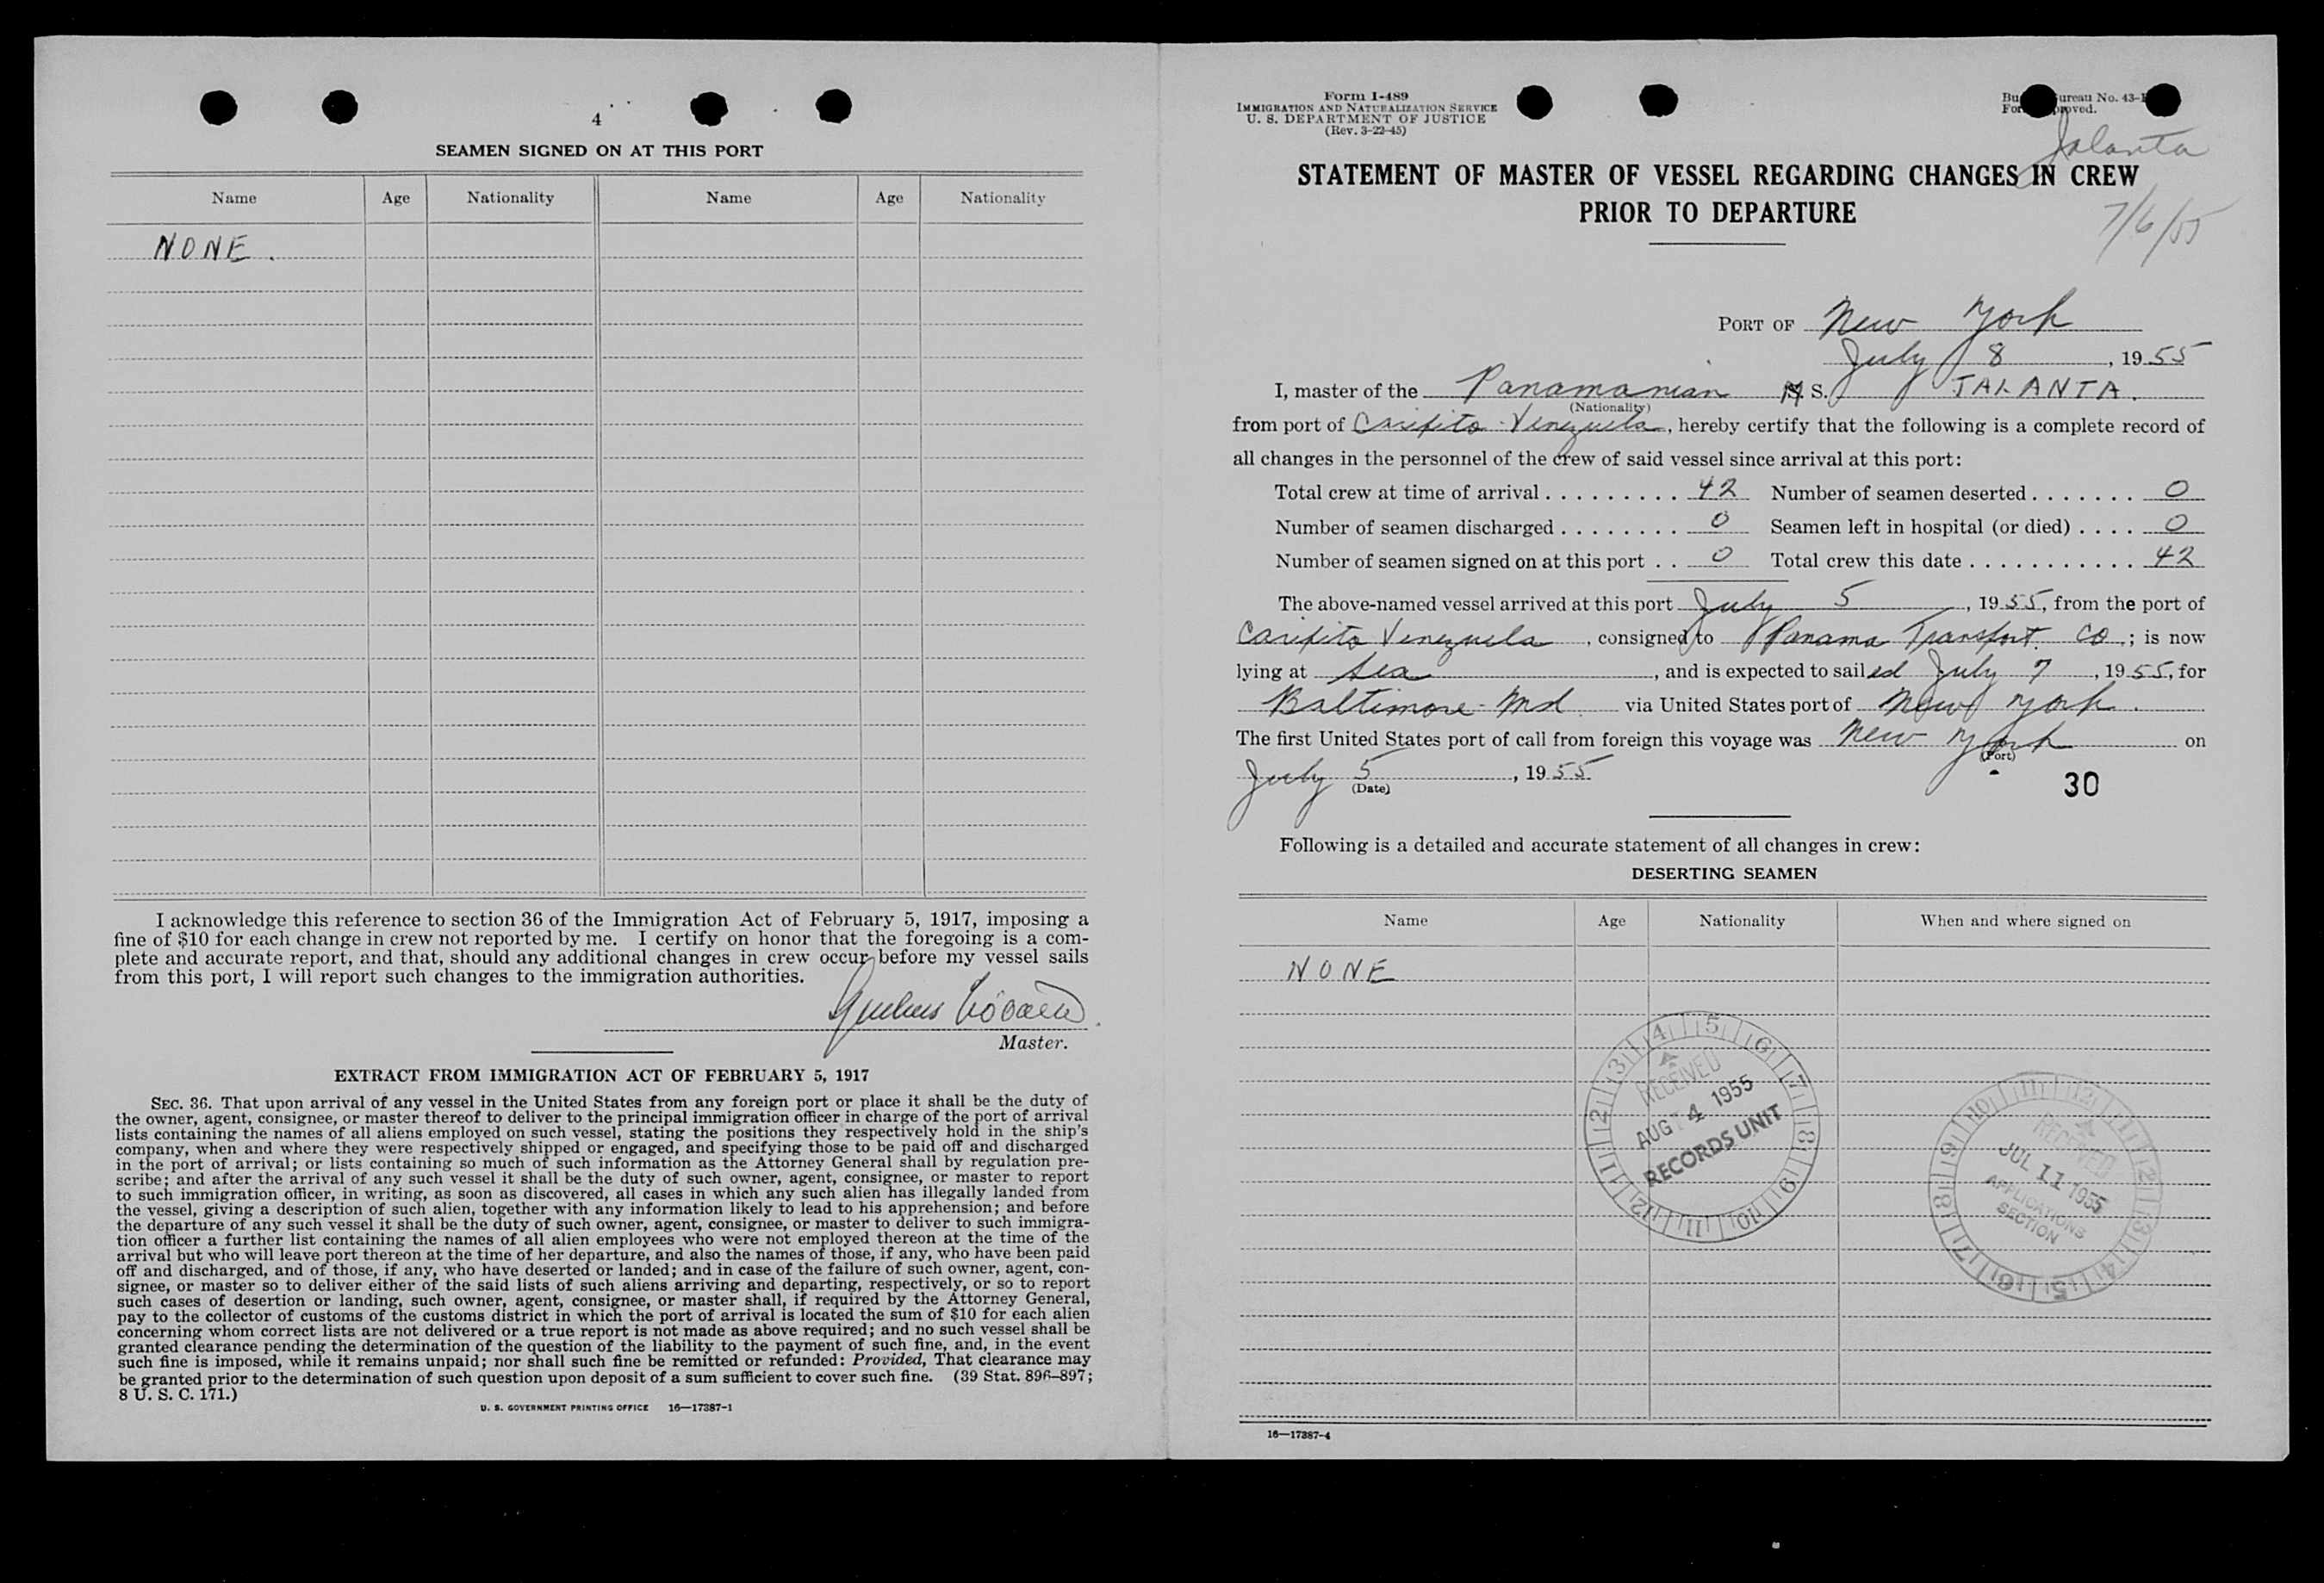 4
SEAMEN SIGNED ON AT THIS PORT
Name Age Nationality Name Age Nationality
NONE.
I acknowledge this reference to section 36 of the Immigration Act of February 5, 1917, imposing a
fine of $10 for each change in crew not reported by me. I certify on honor that the foregoing is a com-
plete and accurate report, and that, should any additional changes in crew occur before my vessel sails
from this port, I will report such changes to the immigration authorities.
Master.
EXTRACT FROM IMMIGRATION ACT OF FEBRUARY 5, 1917
SEC. 36. That upon arrival of any vessel in the United States from any foreign port or place it shall be the duty of
the owner, agent, consignee, or master thereof to deliver to the principal immigration officer in charge of the port of arrival
lists containing the names of all aliens employed on such vessel, stating the positions they respectively hold in the ship's
company, when and where they were respectively shipped or engaged, and specifying those to be paid off and discharged
in the port of arrival; or lists containing so much of such information as the Attorney General shall by regulation pre-
scribe; and after the arrival of any such vessel it shall be the duty of such owner, agent, consignee, or master to report
to such immigration officer, in writing, as soon as discovered, all cases in which any such alien has illegally landed from
the vessel, giving a description of such alien, together with any information likely to lead to his apprehension; and before
the departure of any such vessel it shall be the duty of such owner, agent, consignee, or master to deliver to such immigra-
tion officer a further list containing the names of all alien employees who were not employed thereon at the time of the
arrival but who will leave port thereon at the time of her departure, and also the names of those, if any, who have been paid
off and discharged, and of those, if any, who have deserted or landed; and in case of the failure of such owner, agent, con-
signee, or master so to deliver either of the said lists of such aliens arriving and departing, respectively, or so to report
such cases of desertion or landing, such owner, agent, consignee, or master shall, if required by the Attorney General,
pay to the collector of customs of the customs district in which the port of arrival is located the sum of $10 for each alien
concerning whom correct lists are not delivered or a true report is not made as above required; and no such vessel shall be
granted clearance pending the determination of the question of the liability to the payment of such fine, and, in the event
such fine is imposed, while it remains unpaid; nor shall such fine be remitted or refunded: Provided, That clearance may
be granted prior to the determination of such question upon deposit of a sum sufficient to cover such fine. (39 Stat. 896-897;
8 U. S. C. 171.)
U. S. GOVERNMENT PRINTING OFFICE 16—17387-1
Form I-489
IMMIGRATION AND NATURALIZATION SERVICE
U. S. DEPARTMENT OF JUSTICE
(Rev. 3-22-45)
ureau No. 43-
Jalanta
STATEMENT OF MASTER OF VESSEL REGARDING CHANGES IN CREW
PRIOR TO DEPARTURE
7/6/55
PORT OF New York
July 8, 1955
I, master of the Panamanian M S. JALANTA.
(Nationality)
from port of Caripito Venezuela, hereby certify that the following is a complete record of
all changes in the personnel of the crew of said vessel since arrival at this port:
Total crew at time of arrival 42 Number of seamen deserted 0
Number of seamen discharged 0 Seamen left in hospital (or died) 0
Number of seamen signed on at this port 0 Total crew this date 42
The above-named vessel arrived at this port July 5, 1955, from the port of
Caripito Venezuela, consigned to Panama Transport Co.; is now
lying at Sea, and is expected to sailed July 7, 1955, for
Baltimore - Md. via United States port of New York.
The first United States port of call from foreign this voyage was New York on
(Port)
July 5, 1955
(Date)
30
Following is a detailed and accurate statement of all changes in crew:
DESERTING SEAMEN
Name Age Nationality When and where signed on
NONE
RECEIVED
AUG 4 1955
RECORDS UNIT
RECEIVED
JUL 11 1955
APPLICATIONS
SECTION
16—17387-4